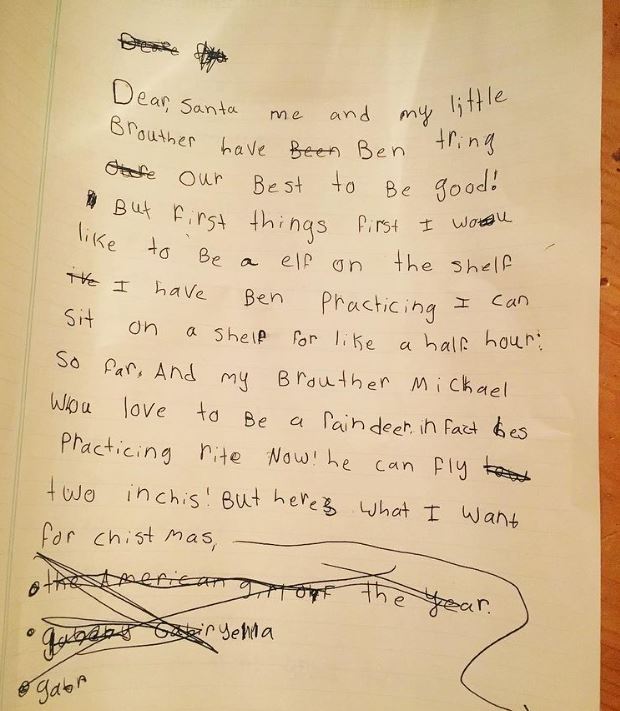 Deare
Dear, Santa me and my little
Brouther have Been Ben tring
our Best to Be good!
But first things first I wou
like to Be a elf on the shelf
I have Ben Practicing I can
Sit on a shelf for like a half hour!
So far, And my Brouther Michael
Wou love to Be a raindeer. in fact hes
Practicing rite Now! he can fly
two inchis! But heres what I want
for chistmas,
• the American girl off the year.
• Gabiryella
• gabr